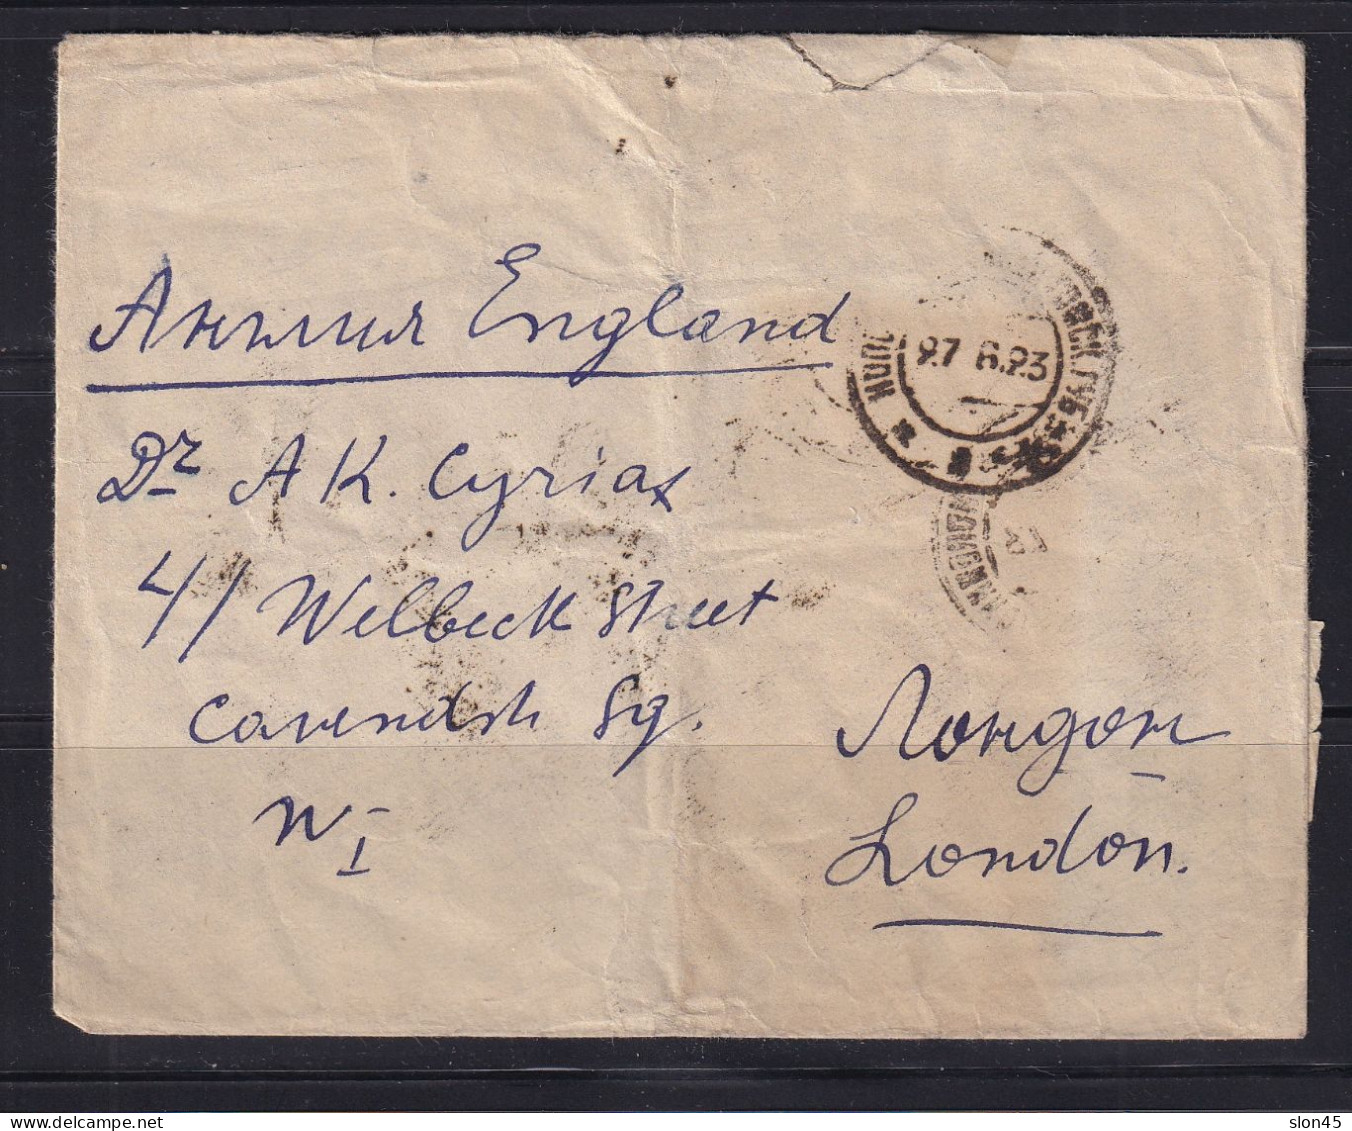 Англия England
Dr A K. Cyriax
41 Welbeck Street
Cavendsh Sq.
W I
Лондон
London.
27 6.23
delcampe.net
slon45